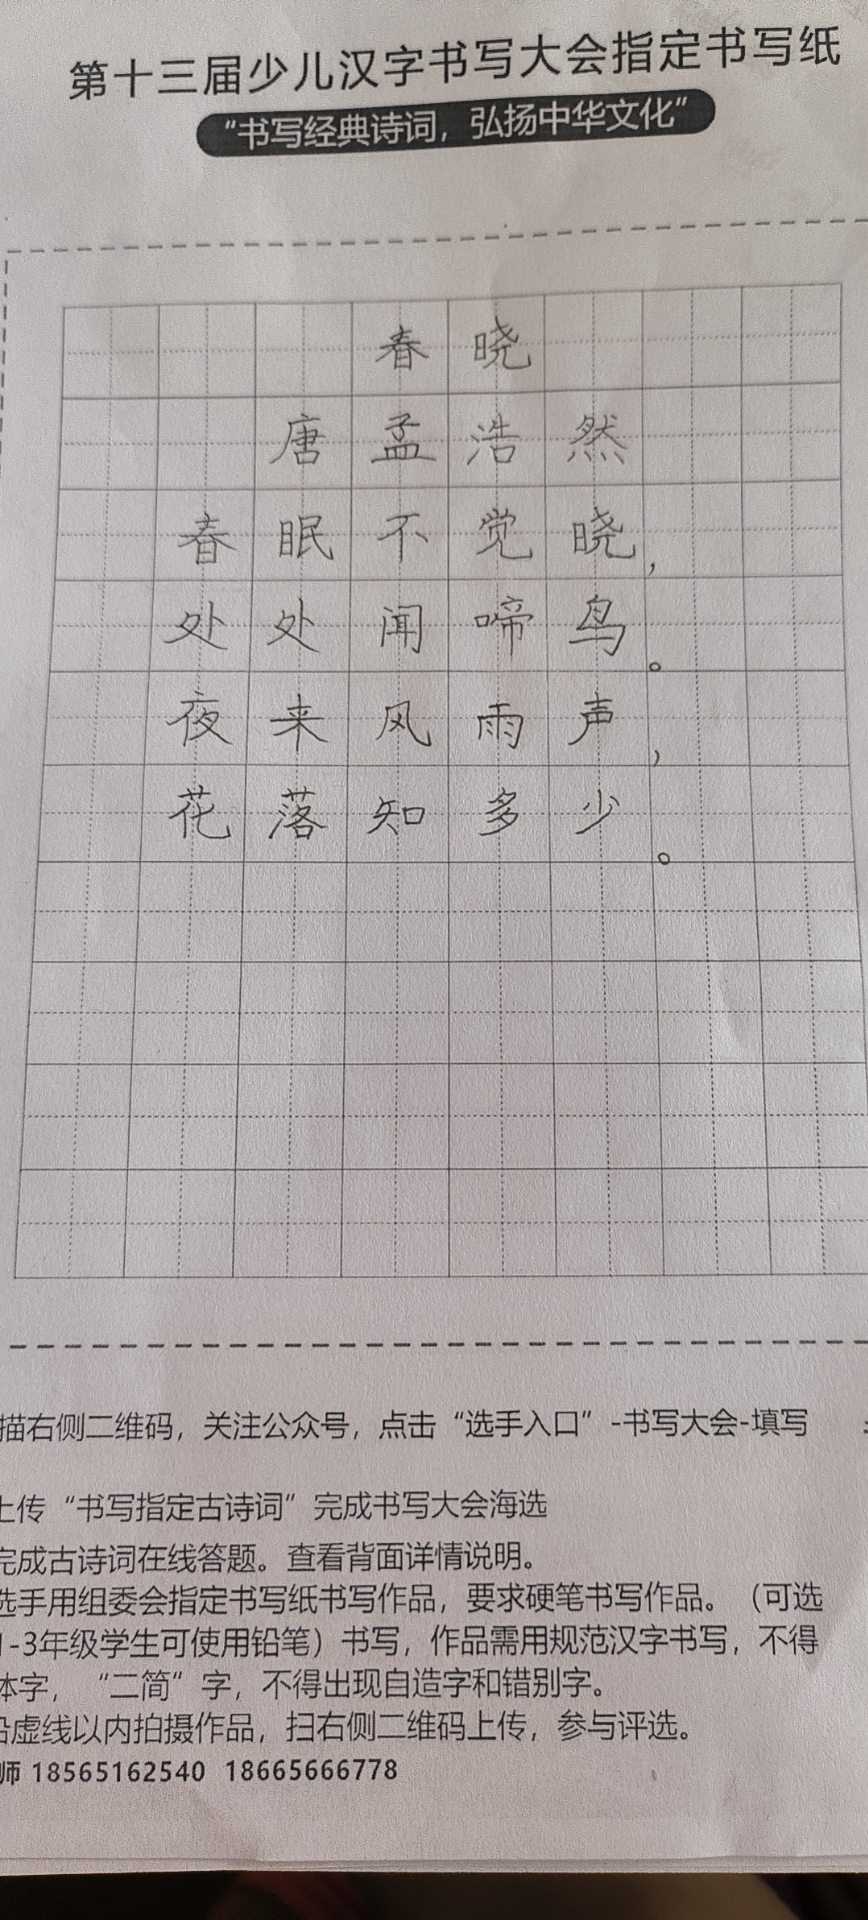 第十三届少儿汉字书写大会指定书写纸
“书写经典诗词，弘扬中华文化”
春晓
唐孟浩然
春眠不觉晓，
处处闻啼鸟。
夜来风雨声，
花落知多少。
描右侧二维码，关注公众号，点击“选手入口”-书写大会-填写
上传“书写指定古诗词”完成书写大会海选
完成古诗词在线答题。查看背面详情说明。
选手用组委会指定书写纸书写作品，要求硬笔书写作品。（可选
1-3年级学生可使用铅笔）书写，作品需用规范汉字书写，不得
体字，“二简”字，不得出现自造字和错别字。
沿虚线以内拍摄作品，扫右侧二维码上传，参与评选。
师 18565162540 18665666778